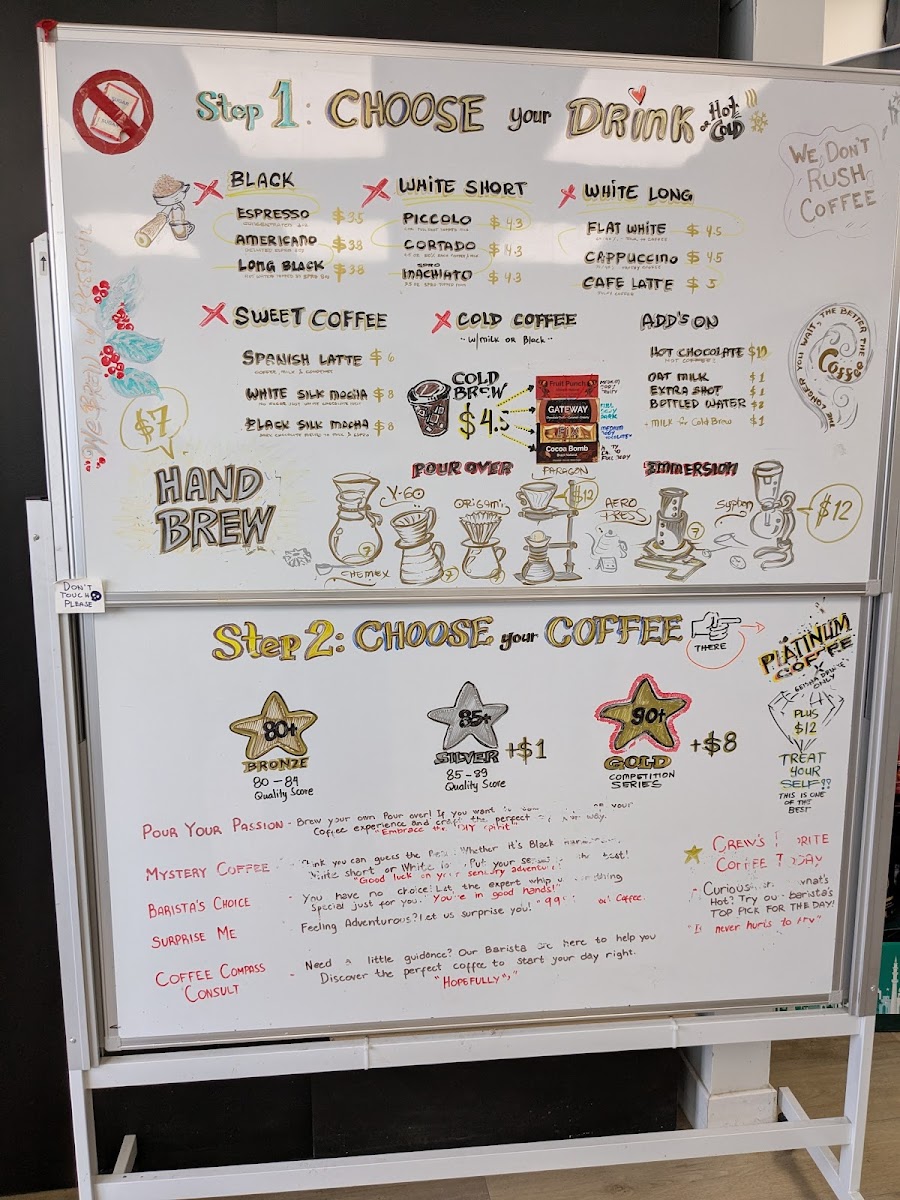 SUGAR
SUGAR
Step 1: CHOOSE your DRINK Hot or COLD
WE DON'T
RUSH
COFFEE
BLACK
ESPRESSO $3.5
AMERICANO $3.8
LONG BLACK $3.8
WHITE SHORT
PICCOLO $4.3
CORTADO $4.3
MACHIATO $4.3
WHITE LONG
FLAT WHITE $4.5
CAPPUCCINO $4.5
CAFE LATTE $5
SWEET COFFEE
SPANISH LATTE $6
WHITE SILK MOCHA $8
BLACK SILK MOCHA $8
COLD COFFEE
w/milk or Black
COLD
BREW
$4.5
Fruit Punch
GATEWAY
Cocoa Bomb
ADD'S ON
HOT CHOCOLATE
OAT MILK $1
EXTRA SHOT $1
BOTTLED WATER
- MILK for Cold Brew $1
THE LONGER YOU WAIT, THE BETTER THE
Coffee
$7
HAND
BREW
POUR OVER
IMMERSION
CHEMEX
V-60
ORIGAMI
PARAGON
$12
AERO
PRESS
Syphon
$12
7
7
7
7
DON'T
TOUCH
PLEASE
Step 2: CHOOSE your COFFEE
THERE
PLATINUM
COFFEE
ONLY
PLUS
$12
TREAT
YOUR
SELF!!
THIS IS ONE
OF THE
BEST
80+
BRONZE
80-84
Quality Score
85+
SILVER +$1
85-89
Quality Score
90+
GOLD +$8
COMPETITION
SERIES
POUR YOUR PASSION - Brew your own Pour over! If you want your
Coffee experience and craft the perfect way.
"Embrace the DIY spirit"
MYSTERY COFFEE - Think you can guess the Whether it's Black
White short or White Put your test!
"Good luck on your sensory adventure"
BARISTA'S CHOICE - You have no choice! Let the expert whip
Special just for you. "You're in good hands!"
SURPRISE ME Feeling Adventurous? Let us surprise you! Coffee.
COFFEE COMPASS
CONSULT
- Need a little guidance? Our Barista are here to help you
Discover the perfect coffee to start your day right.
"HOPEFULLY"
CREW'S
COFFEE
- Curious what's
Hot? Try our barista's
TOP PICK FOR THE DAY!
"It never hurts to try"